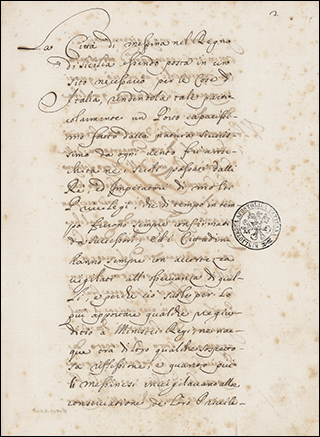 2
La Città di Messina nel Regno
di Sicilia essendo posta in un
sito necessario per le Cose d'
Italia, rendendola tale parti-
colarmente un Porto capacissi-
mo fatto dalla natura sicuris-
simo da ogni vento fù arric-
chita ne' secoli passati dalli
Rè ed Imperatori di molti
Privilegi, che di tempo in tem-
po furono sempre confirmati
da successori, ed i Cittadini
hanno sempre con accortezza
invigilato all'osservanza di quel-
li, e perche ciò suole per lo
più apportare qualche pregiu-
dizio a Ministri Regij, ne nac-
que ora di loro qualche sospetto
e riflessione; e quanto più
li Messinesi invigilavano alla
conservazione de loro Privile-